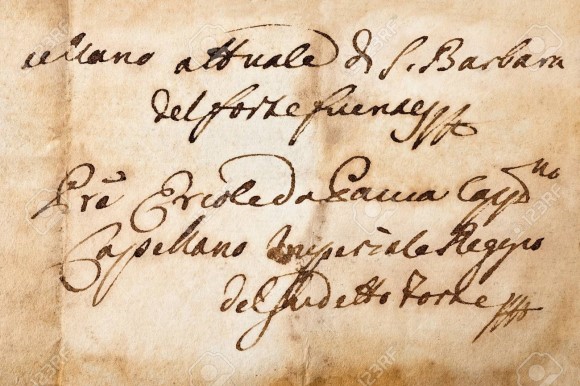 ellano attuale di S. Barbara
del forte fuentes
Prē Ercole da Capp.no
Capellano Imperiale Reggio
del sudetto Forte